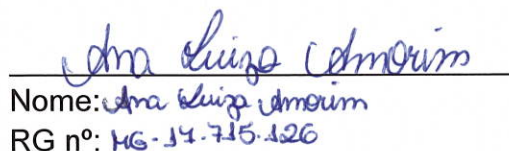 Ana Luiza Amorim
Nome: Ana Luiza Amorim
RG nº: MG-17.715.126